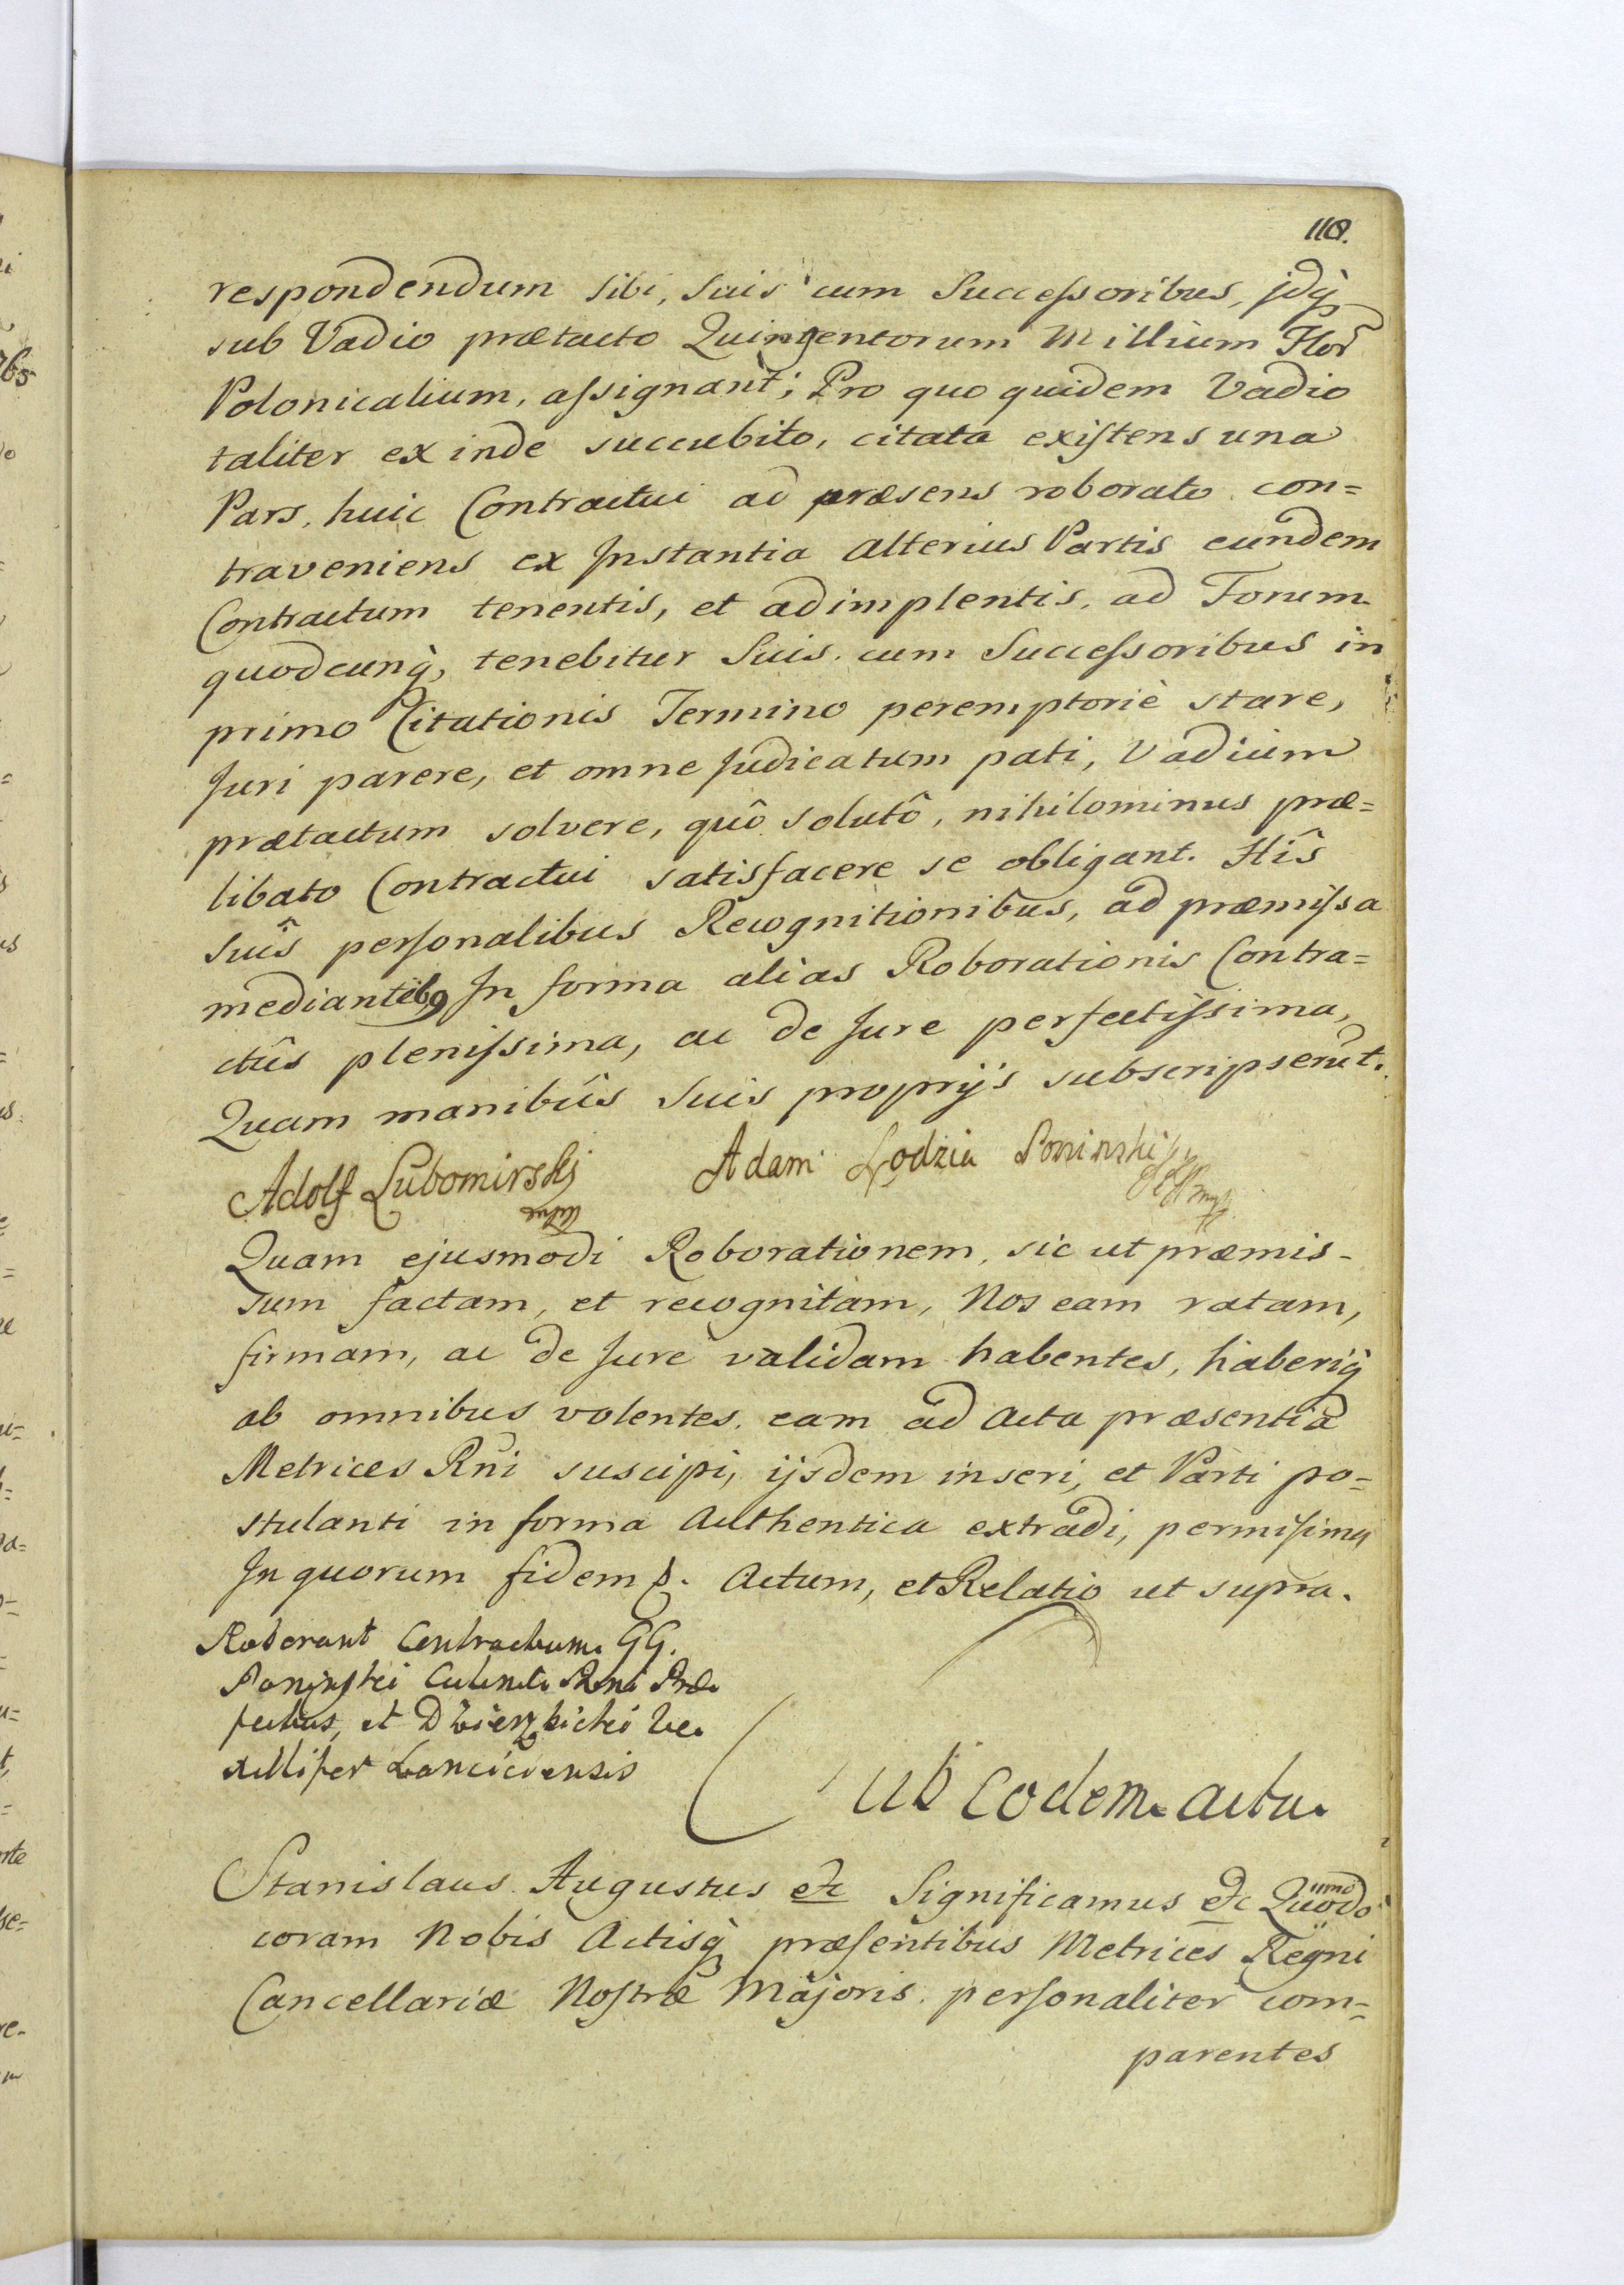 118.
respondendum sibi, suis cum Successoribus, jdq̀
sub Vadio prætacto Quingentorum Millium Flor̃
Polonicalium, assignant; Pro quo quidem Vadio
taliter exinde succubito, citata existens una
Pars, huic Contractui ad præsens roborato con=
traveniens ex Instantia alterius Partis eundem
Contractum tenentis, et adimplentis, ad Forum
quodcunq̀, tenebitur Suis cum Successoribus in
primo Citationis Termino peremptoriè stare,
Juri parere, et omne Judicatum pati, Vadium
prætactum solvere, quô solutô, nihilominus præ=
libato Contractui satisfacere se obligant. Hîs
Suîs personalibus Recognitionibus, ad præmissa
mediantibꝯ In forma alias Roborationis Contra=
ctûs plenissima, ac de Jure perfectissima,
Quam manibûs Suis proprijs subscripserũt.
Adolf Lubomirski Adam Łodzia Poninski
Quam ejusmodi Roborationem, sic ut præmis=
sum factam, et recognitam, Nos eam ratam,
firmam, ac de Jure validam habentes, haberiq̀
ab omnibus volentes, eam ad Acta præsentia
Metrices Rñi suscipi, ijsdem inseri, et Parti po=
stulanti in forma Authentica extradi, permisimꝯ
In quorum fidem &. Actum, et Relatio ut supra.
Roborant Contractum GG.
Poninski Culinæ Rñi Præ
fectus, et Dzierzbicki Ve
xillifer Lanciciensis
Sub Eodem Actu
Stanislaus Augustus etc Significamus etc Quod
coram Nobis Actisq̀ præsentibus Metrices Regni
Cancellariæ Nostræ Majoris personaliter com=
parentes